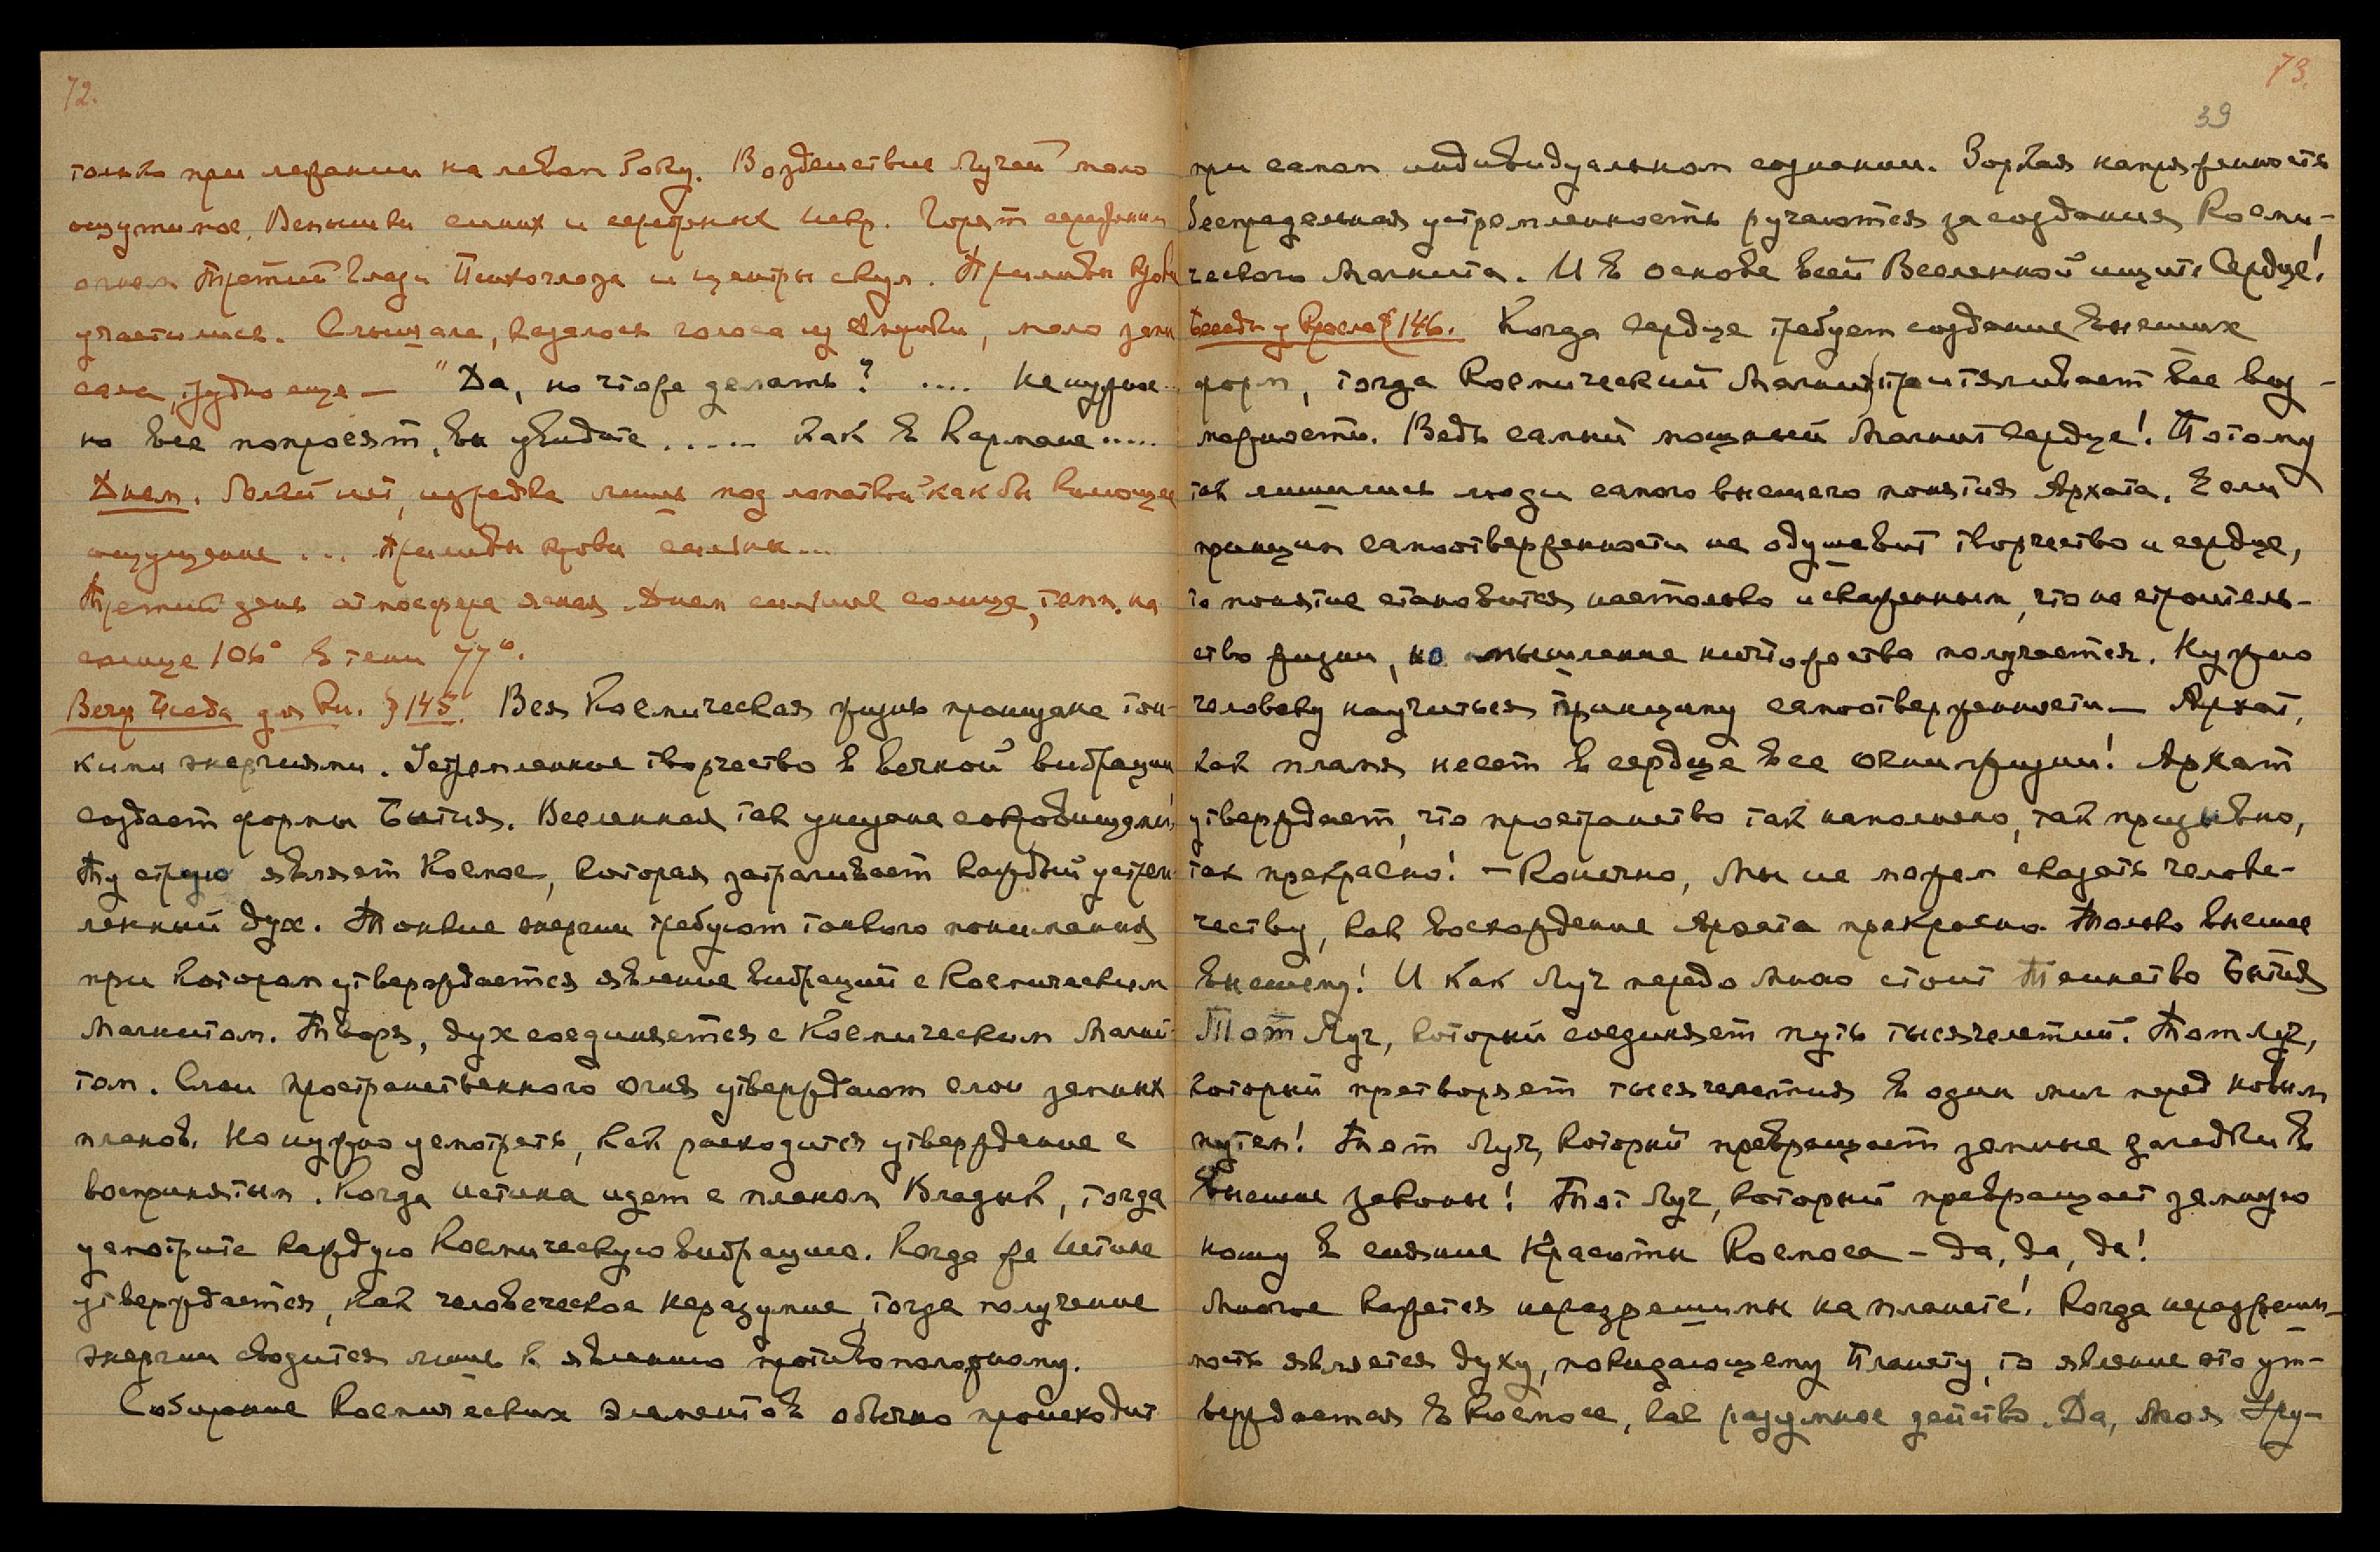 72.
только при лежании на левом боку. Воздействие Лучей мало
ощутимое. Вспышки синих и серебряных искр. Горят
огнем Третий Глаз и центры скул. Приливы крови
участились. Слышала, казалось голоса из
сала, трудно еще — "Да, но что же делать? .... не нужно
но все попросят, вы увидите ..... как в кармане .....
Днем. Болей нет, изредка лишь под лопаткой как бы колющее
ощущение ... Приливы крови сильны ...
Третий день атмосфера ясная. Днем сильное солнце, темп. на
солнце 106° в тени 77°.
Веч. Беседа для Кн. § 145. Вся Космическая жизнь пронизана тон-
кими энергиями. Устремленное творчество в вечной вибрации
создает формы Бытия. Вселенная так унизана сокровищами!
Ту струю являет Космос, которая затрагивает каждый устрем-
ленный дух. Тонкие энергии требуют тонкого понимания
при котором утверждается явление вибраций с Космическим
Магнитом. Творя, дух соединяется с Космическим Магни-
том. Слои пространственного огня утверждают слои земных
планов. Но нужно усмотреть, как расходится утверждение с
восприятием. Когда истина идет с планом Владык, тогда
усмотрите каждую Космическую вибрацию. Когда же Истина
утверждается, как человеческое неразумие, тогда получение
энергии сводится лишь к явлению противоположному.
Собирание Космических элементов обычно происходит
73.
39
при самом индивидуальном сознании. Зоркая напряженность
беспредельная устремленность ручаются за создания Косми-
ческого Магнита. И в основе всей Вселенной ищите Сердце!
Беседы у Кресла § 146. Когда Сердце требует создание высших
форм, тогда Космический Магнит притягивает все воз-
можности. Ведь самый мощный Магнит Сердце! Потому
так лишились люди самого высшего понятия Архата. Если
принцип самоотверженности не одушевит творчество и сердце,
то понятие становится настолько искаженным, что не строитель-
ство жизни, но мышление ничтожества получается. Нужно
человеку научиться принципу самоотверженности — Архат,
как пламя несет в сердце все огни жизни! Архат
утверждает, что пространство так наполнено, так призывно,
так прекрасно! — Конечно, Мы не можем сказать челове-
честву, как восхождение Архата прекрасно. Только высшее
высшему! И как Луч передо Мною стоит Таинство Бытия
Тот Луч, который соединяет путь тысячелетий. Тот Луч,
который претворяет тысячелетия в один миг перед новым
путем! Тот Луч, который превращает земные загадки в
высшие законы! Тот Луч, который превращает земную
ношу в сияние Красоты Космоса — да, да, да!
Многое кажется неразрешимы на планете! Когда неразреши-
мость является духу, покидающему планету, то явление это ут-
верждается в Космосе, как разумное действо. Да, Моя Уру-